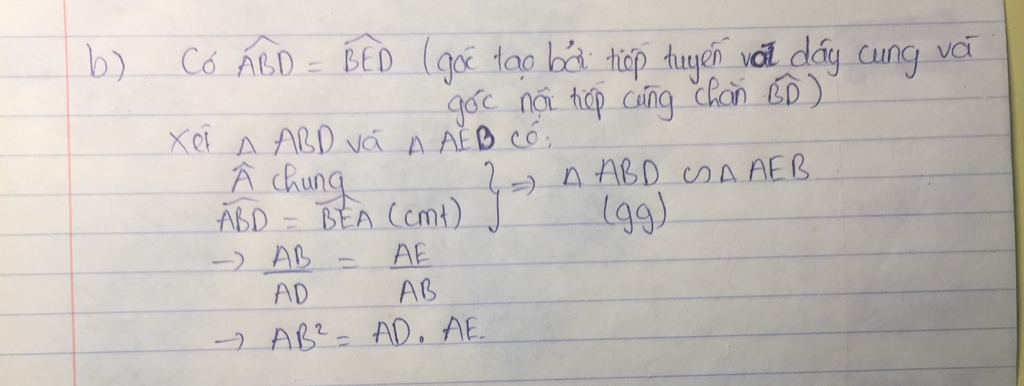 b) Có ABD = BED (góc tạo bởi tiếp tuyến với dây cung và
góc nội tiếp cùng chắn BD)
Xét △ ABD và △ AEB có:
Â chung } => △ ABD ∽ △ AEB
ABD = BEA (cmt) (gg)
→ AB/AD = AE/AB
→ AB² = AD. AE.